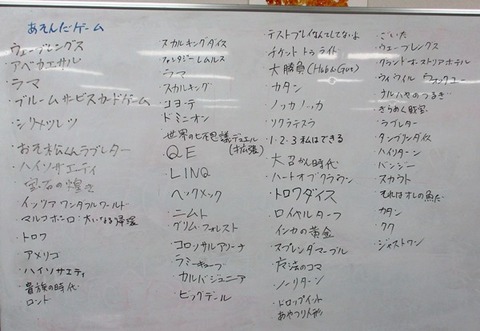 あそんだゲーム
・ウェーブレングス
・アベカエサル
・ラマ
・ブルームサービスカードゲーム
・シリメツレツ
・おそ松くんラブレター
・ハイソサエティ
・宝石の煌き
・イッツアワンダフルワールド
・マルコポーロ：大いなる帰還
・トロワ
・アメリゴ
・ハイソサエティ
・貴族の時代
・ロント
・スカルキングダイス
・ファンタジーレルムズ
・ラマ
・スカルキング
・コヨーテ
・ドミニオン
・世界の七不思議デュエル
(+拡張)
・QE
・LINQ
・ヘックメック
・ニムト
・グリムフォレスト
・コロッサルアリーナ
・ラミーキューブ
・カルバジュニア
・ビッグデール
・テストプレイなんてしてないよ
・チケットトゥライド
・大勝負
・カタン
・ノッカノッカ
・ツクラテスラ
・1・2・3私はできる
・大召かん時代
・ハートオブクラウン
・トロワダイス
・ロイヤルターフ
・インカの黄金
・スプレンダーマーブル
・魔法のコマ
・ノーリターン
・ドロップイット
あやつり人形
・ごいた
・ウェーブレングス
・グランドオーストリアホテル
・ウィウィルロックユー
・ケルハサのつるぎ
・きらめく財宝
・ラブレター
・タンブリンダイス
・ハイリターン
・バンジー
・スカウト
・それはオレの魚だ
・カタン
・クク
・ジャストワン